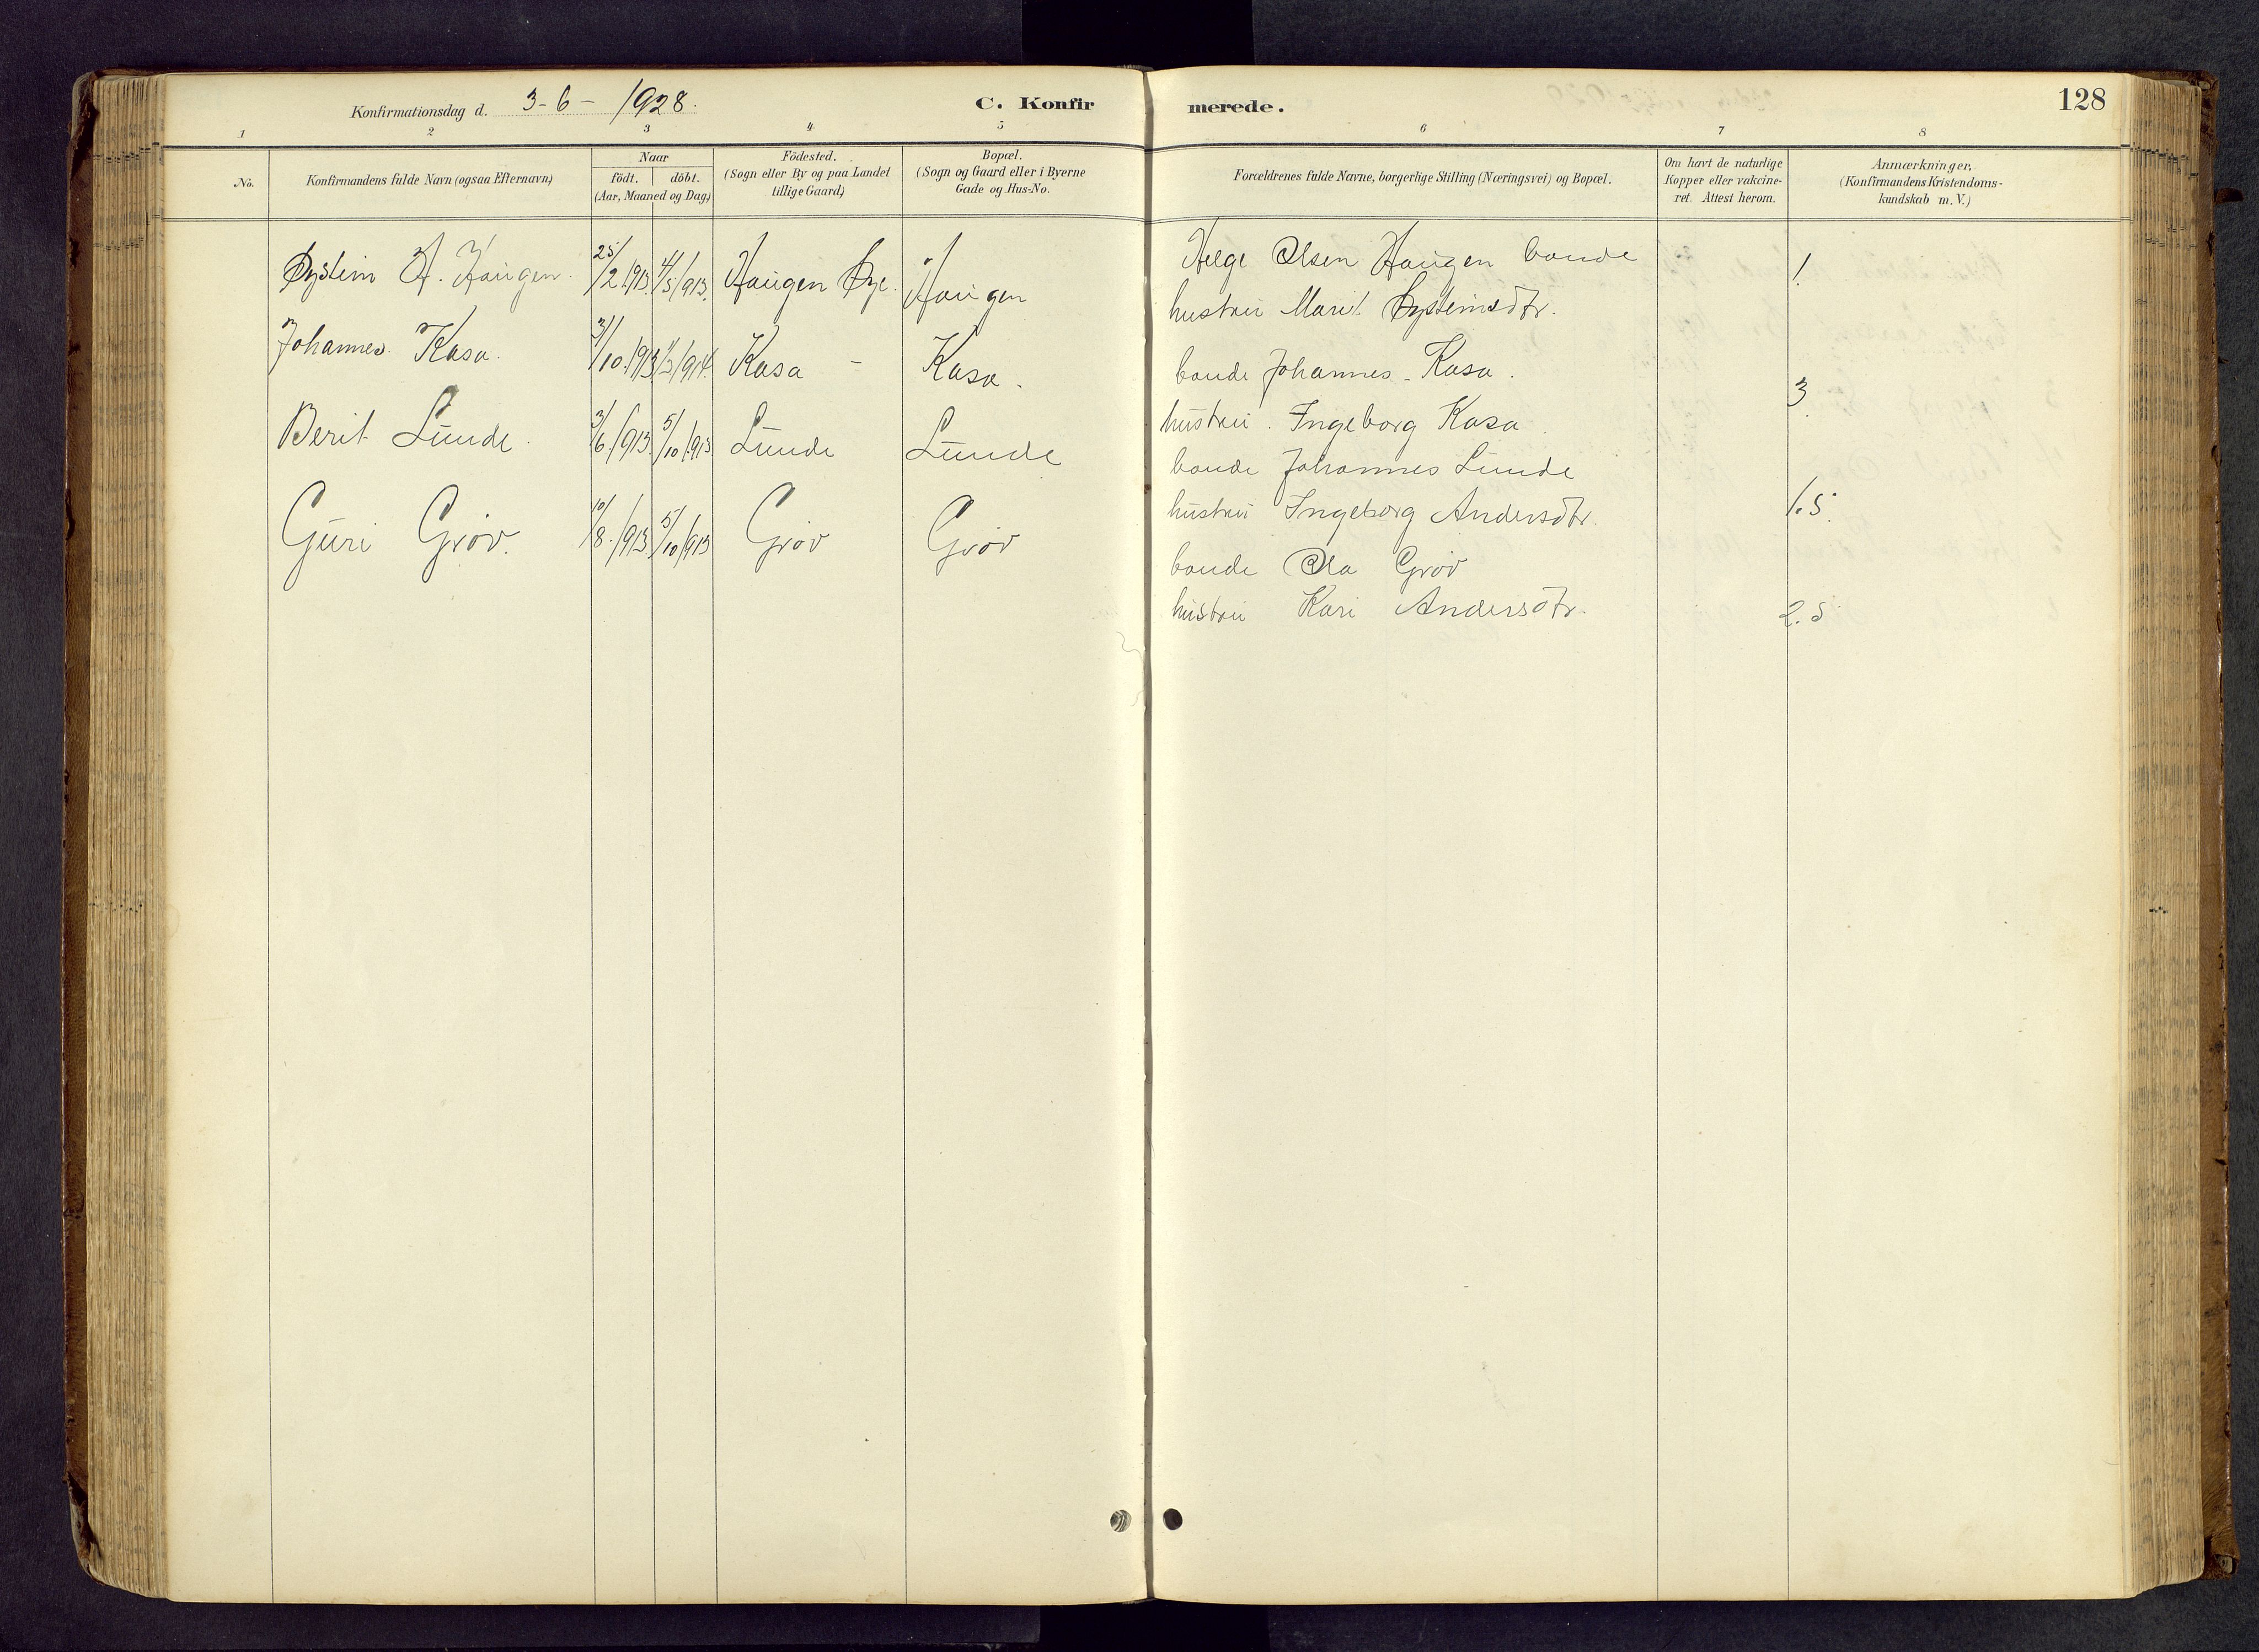 Konfirmationsdag d. 3-6-1928.
C. Konfirmerede.
128
1 2 3 4 5 6 7 8
No.
Konfirmandens fulde Navn (ogsaa Efternavn)
Naar
födt. döbt.
(Aar, Maaned og Dag)
Födested.
(Sogn eller By og paa Landet
tillige Gaard)
Bopæl.
(Sogn og Gaard eller i Byerne
Gade og Hus-No.
Forældrenes fulde Navne, borgerlige Stilling (Næringsvei) og Bopæl.
Om havt de naturlige
Kopper eller vakcine-
ret. Attest herom.
Anmærkninger,
(Konfirmandens Kristendoms-
kundskab m. V.)
Øystein H. Haugen. 25/2 1913. 4/5/913. Haugen Øye. Haugen
Helge Olsen Haugen bonde 1
hustru Marit Øysteinsdtr.
Johannes Kasa. /10 1913 Kasa - Kasa.
bonde Johannes Kasa. 3
hustru. Ingeborg Kasa
Berit Lunde. 3/6/913 5/10/913 Lunde Lunde
bonde Johannes Lunde
hustru Ingeborg Andersdtr. 1.5.
Guri Grøv. 10/8/913 5/10/913 Grøv Grøv
bonde Ola Grøv
hustru Kari Andersdtr. 2.5